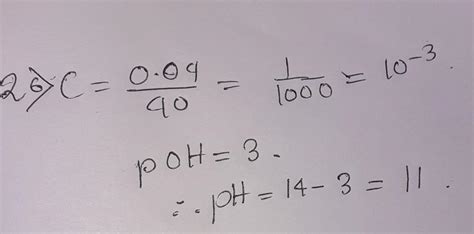 26) C = 0.04/40 = 1/1000 = 10⁻³.
pOH = 3.
∴ pH = 14 - 3 = 11.